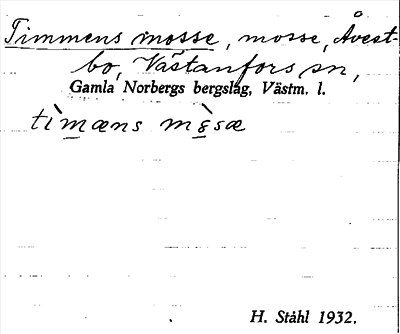 Timmens mosse, mosse, Åvest-
bo, Västanfors sn,
Gamla Norbergs bergslag, Västm. l.
tìmæns mòsæ
H. Ståhl 1932.